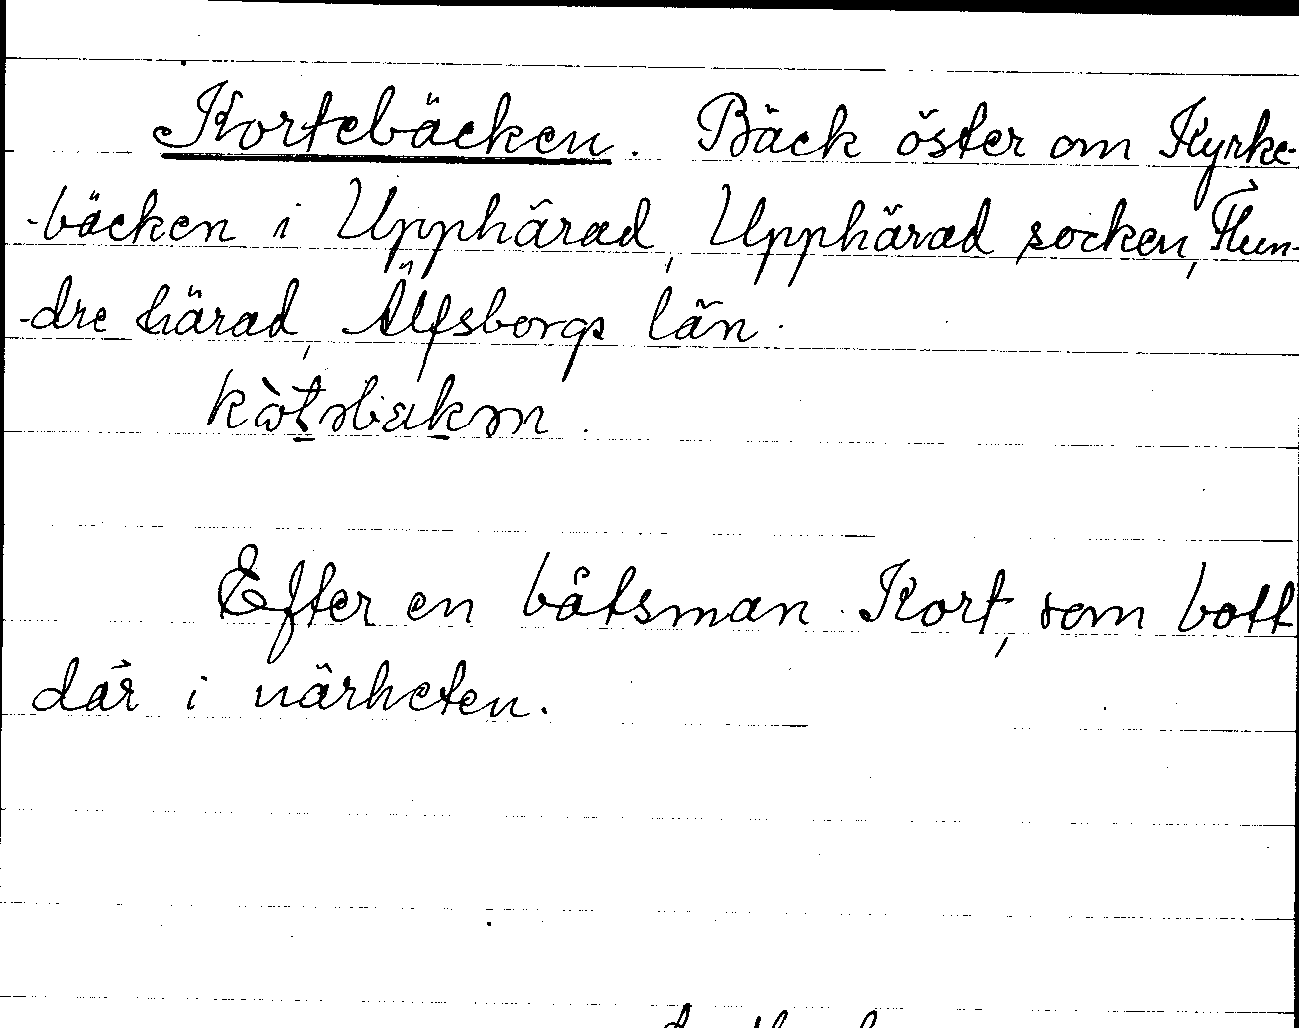 Kortebäcken. Bäck öster om Kyrke-
-bäcken i Upphärad, Upphärad socken, Flun-
-dre härad, Älfsborgs län.
Efter en båtsman Kort, som bott
där i närheten.